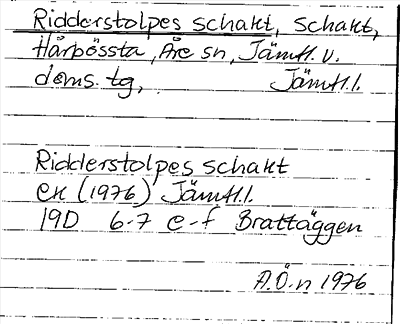 Ridderstolpes schakt, schakt,
Hårbössta, Åre sn, Jämtl. v.
doms. tg, Jämtl. l.
Ridderstolpes schakt
ek (1976) Jämtl. l.
19D 6-7 e-f Brattäggen
A.Ö.n 1976